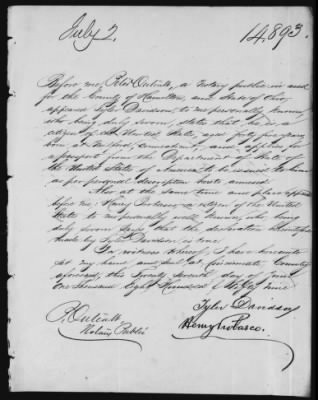 July 2.
14,893.
Before me, Peter Outcalt, a Notary public in and
for the County of Hamilton, and State of Ohio,
appeared Tyler Davidson, to me personally known,
who being duly sworn, states that he is a
citizen of the United States, aged forty five years,
born at Milford, Connecticut, and applies for
a passport from the Department of State of
the United States of America to be issued to him
as per personal description hereto annexed.
Also at the same time and place appeared
before me Henry Probasco a citizen of the United
States to me personally well known, who being
duly sworn says that the declaration
made by Tyler Davidson is true.
In witness Whereof, I have hereunto
set my hand and seal at Cincinnati County
aforesaid, this Twenty Seventh day of June
One thousand Eight Hundred & Fifty nine
P. Outcalt
Notary Public
Tyler Davidson
Henry Probasco.